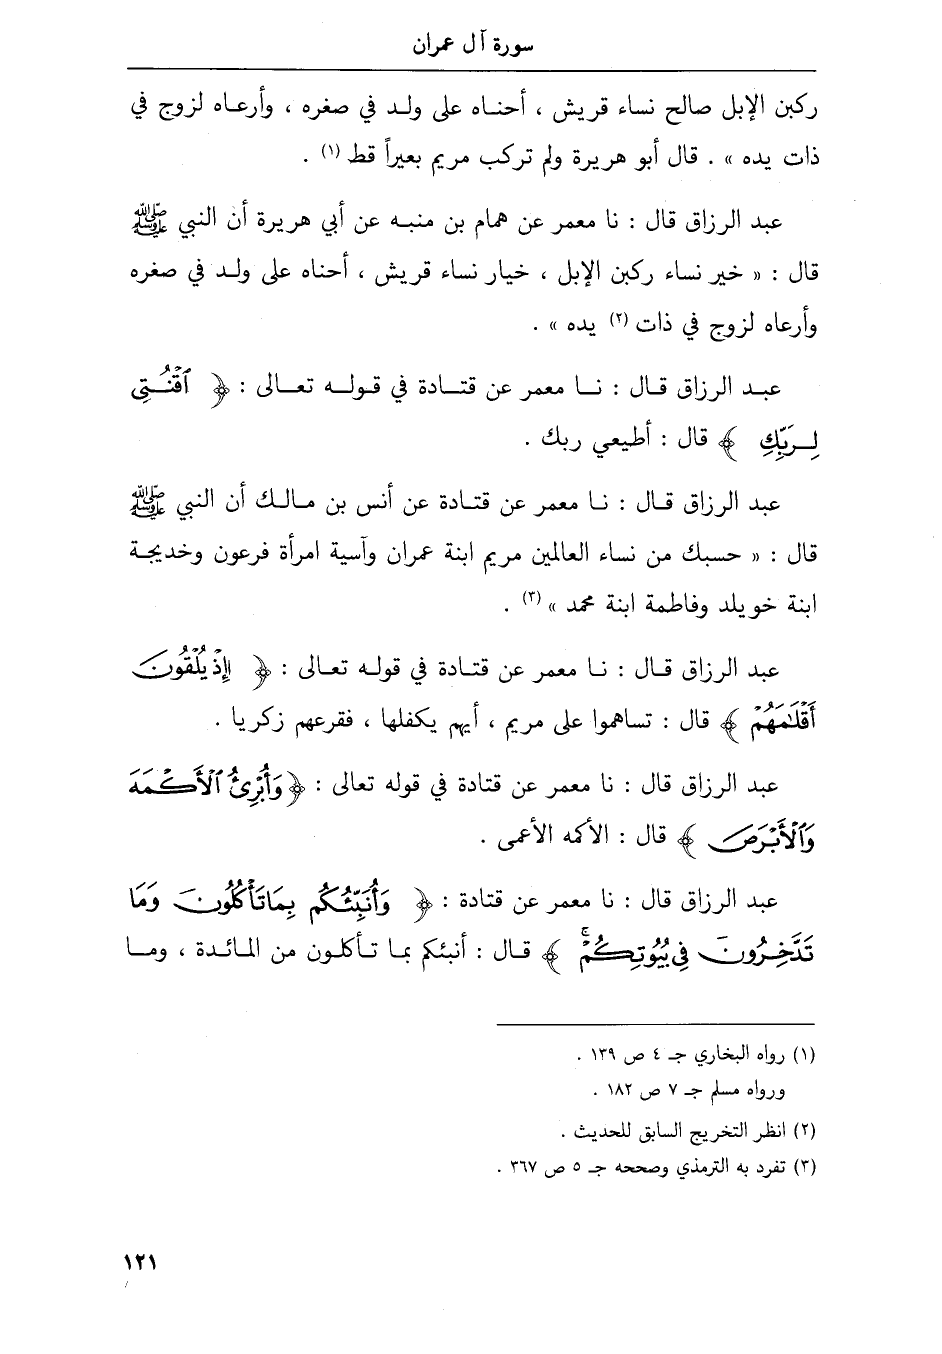 سورة آل عمران
ركبن الإبل صالح نساء قريش ، أحناه على ولد في صغره ، وأرعاه لزوج في
ذات يده » . قال أبو هريرة ولم تركب مريم بعيراً قط (١) .
عبد الرزاق قال : نا معمر عن همام بن منبه عن أبي هريرة أن النبي ﷺ
قال : « خير نساء ركبن الإبل ، خيار نساء قريش ، أحناه على ولد في صغره
وأرعاه لزوج في ذات (٢) يده » .
عبد الرزاق قال : نا معمر عن قتادة في قوله تعالى : ﴿ ٱقْنُتِى
لِرَبِّكِ ﴾ قال : أطيعي ربك .
عبد الرزاق قال : نا معمر عن قتادة عن أنس بن مالك أن النبي ﷺ
قال : « حسبك من نساء العالمين مريم ابنة عمران وآسية امرأة فرعون وخديجة
ابنة خويلد وفاطمة ابنة محمد » (٣) .
عبد الرزاق قال : نا معمر عن قتادة في قوله تعالى : ﴿ إِذْ يُلْقُونَ
أَقْلَٰمَهُمْ ﴾ قال : تساهموا على مريم ، أيهم يكفلها ، فقرعهم زكريا .
عبد الرزاق قال : نا معمر عن قتادة في قوله تعالى : ﴿ وَأُبْرِئُ ٱلْأَكْمَهَ
وَٱلْأَبْرَصَ ﴾ قال : الأكمه الأعمى .
عبد الرزاق قال : نا معمر عن قتادة : ﴿ وَأُنَبِّئُكُم بِمَا تَأْكُلُونَ وَمَا
تَدَّخِرُونَ فِى بُيُوتِكُمْ ۚ ﴾ قال : أنبئكم بما تأكلون من المائدة ، وما
(١) رواه البخاري جـ ٤ ص ١٣٩ .
ورواه مسلم جـ ٧ ص ١٨٢ .
(٢) انظر التخريج السابق للحديث .
(٣) تفرد به الترمذي وصححه جـ ٥ ص ٣٦٧ .
١٢١